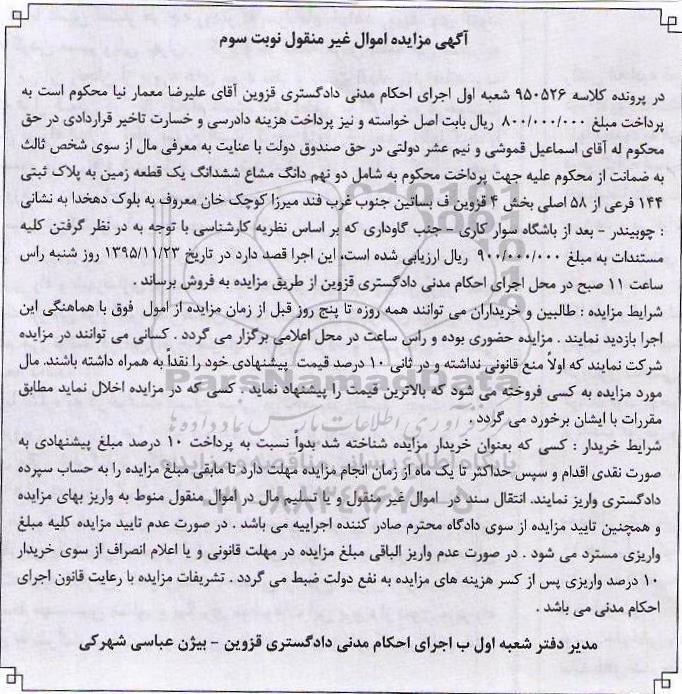 آگهی مزایده اموال غیر منقول نوبت سوم
در پرونده کلاسه ۹۵۰۵۲۶ شعبه اول اجرای احکام مدنی دادگستری قزوین آقای علیرضا معمار نیا محکوم است به
پرداخت مبلغ ۸۰۰/۰۰۰/۰۰۰ ریال بابت اصل خواسته و نیز پرداخت هزینه دادرسی و خسارت تاخیر قراردادی در حق
محکوم له آقای اسماعیل قموشی و نیم عشر دولتی در حق صندوق دولت با عنایت به معرفی مال از سوی شخص ثالث
به ضمانت از محکوم علیه جهت پرداخت محکوم به شامل دو نهم دانگ مشاع ششدانگ یک قطعه زمین به پلاک ثبتی
۱۴۴ فرعی از ۵۸ اصلی بخش ۴ قزوین ف بساتین جنوب غرب فند میرزا کوچک خان معروف به بلوک دهخدا به نشانی
: چوبیندر - بعد از باشگاه سوار کاری - جنب گاوداری که بر اساس نظریه کارشناسی با توجه به در نظر گرفتن کلیه
مستندات به مبلغ ۹۰۰/۰۰۰/۰۰۰ ریال ارزیابی شده است، این اجرا قصد دارد در تاریخ ۱۳۹۵/۱۱/۲۳ روز شنبه راس
ساعت ۱۱ صبح در محل اجرای احکام مدنی دادگستری قزوین از طریق مزایده به فروش برساند .
شرایط مزایده : طالبین و خریداران می توانند همه روزه تا پنج روز قبل از زمان مزایده از اموال فوق با هماهنگی این
اجرا بازدید نمایند . مزایده حضوری بوده و راس ساعت در محل اعلامی برگزار می گردد . کسانی می توانند در مزایده
شرکت نمایند که اولاً منع قانونی نداشته و در ثانی ۱۰ درصد قیمت پیشنهادی خود را نقداً به همراه داشته باشند. مال
مورد مزایده به کسی فروخته می شود که بالاترین قیمت را پیشنهاد نماید . کسی که در مزایده اخلال نماید مطابق
مقررات با ایشان برخورد می گردد.
شرایط خریدار : کسی که بعنوان خریدار مزایده شناخته شد بدواً نسبت به پرداخت ۱۰ درصد مبلغ پیشنهادی به
صورت نقدی اقدام و سپس حداکثر تا یک ماه از زمان انجام مزایده مهلت دارد تا مابقی مبلغ مزایده را به حساب سپرده
دادگستری واریز نمایند. انتقال سند در اموال غیر منقول و یا تسلیم مال در اموال منقول منوط به واریز بهای مزایده
و همچنین تایید مزایده از سوی دادگاه محترم صادر کننده اجراییه می باشد . در صورت عدم تایید مزایده کلیه مبلغ
واریزی مسترد می شود . در صورت عدم واریز الباقی مبلغ مزایده در مهلت قانونی و یا اعلام انصراف از سوی خریدار
۱۰ درصد واریزی پس از کسر هزینه های مزایده به نفع دولت ضبط می گردد . تشریفات مزایده با رعایت قانون اجرای
احکام مدنی می باشد .
مدیر دفتر شعبه اول ب اجرای احکام مدنی دادگستری قزوین - بیژن عباسی شهرکی
ParsNamadData